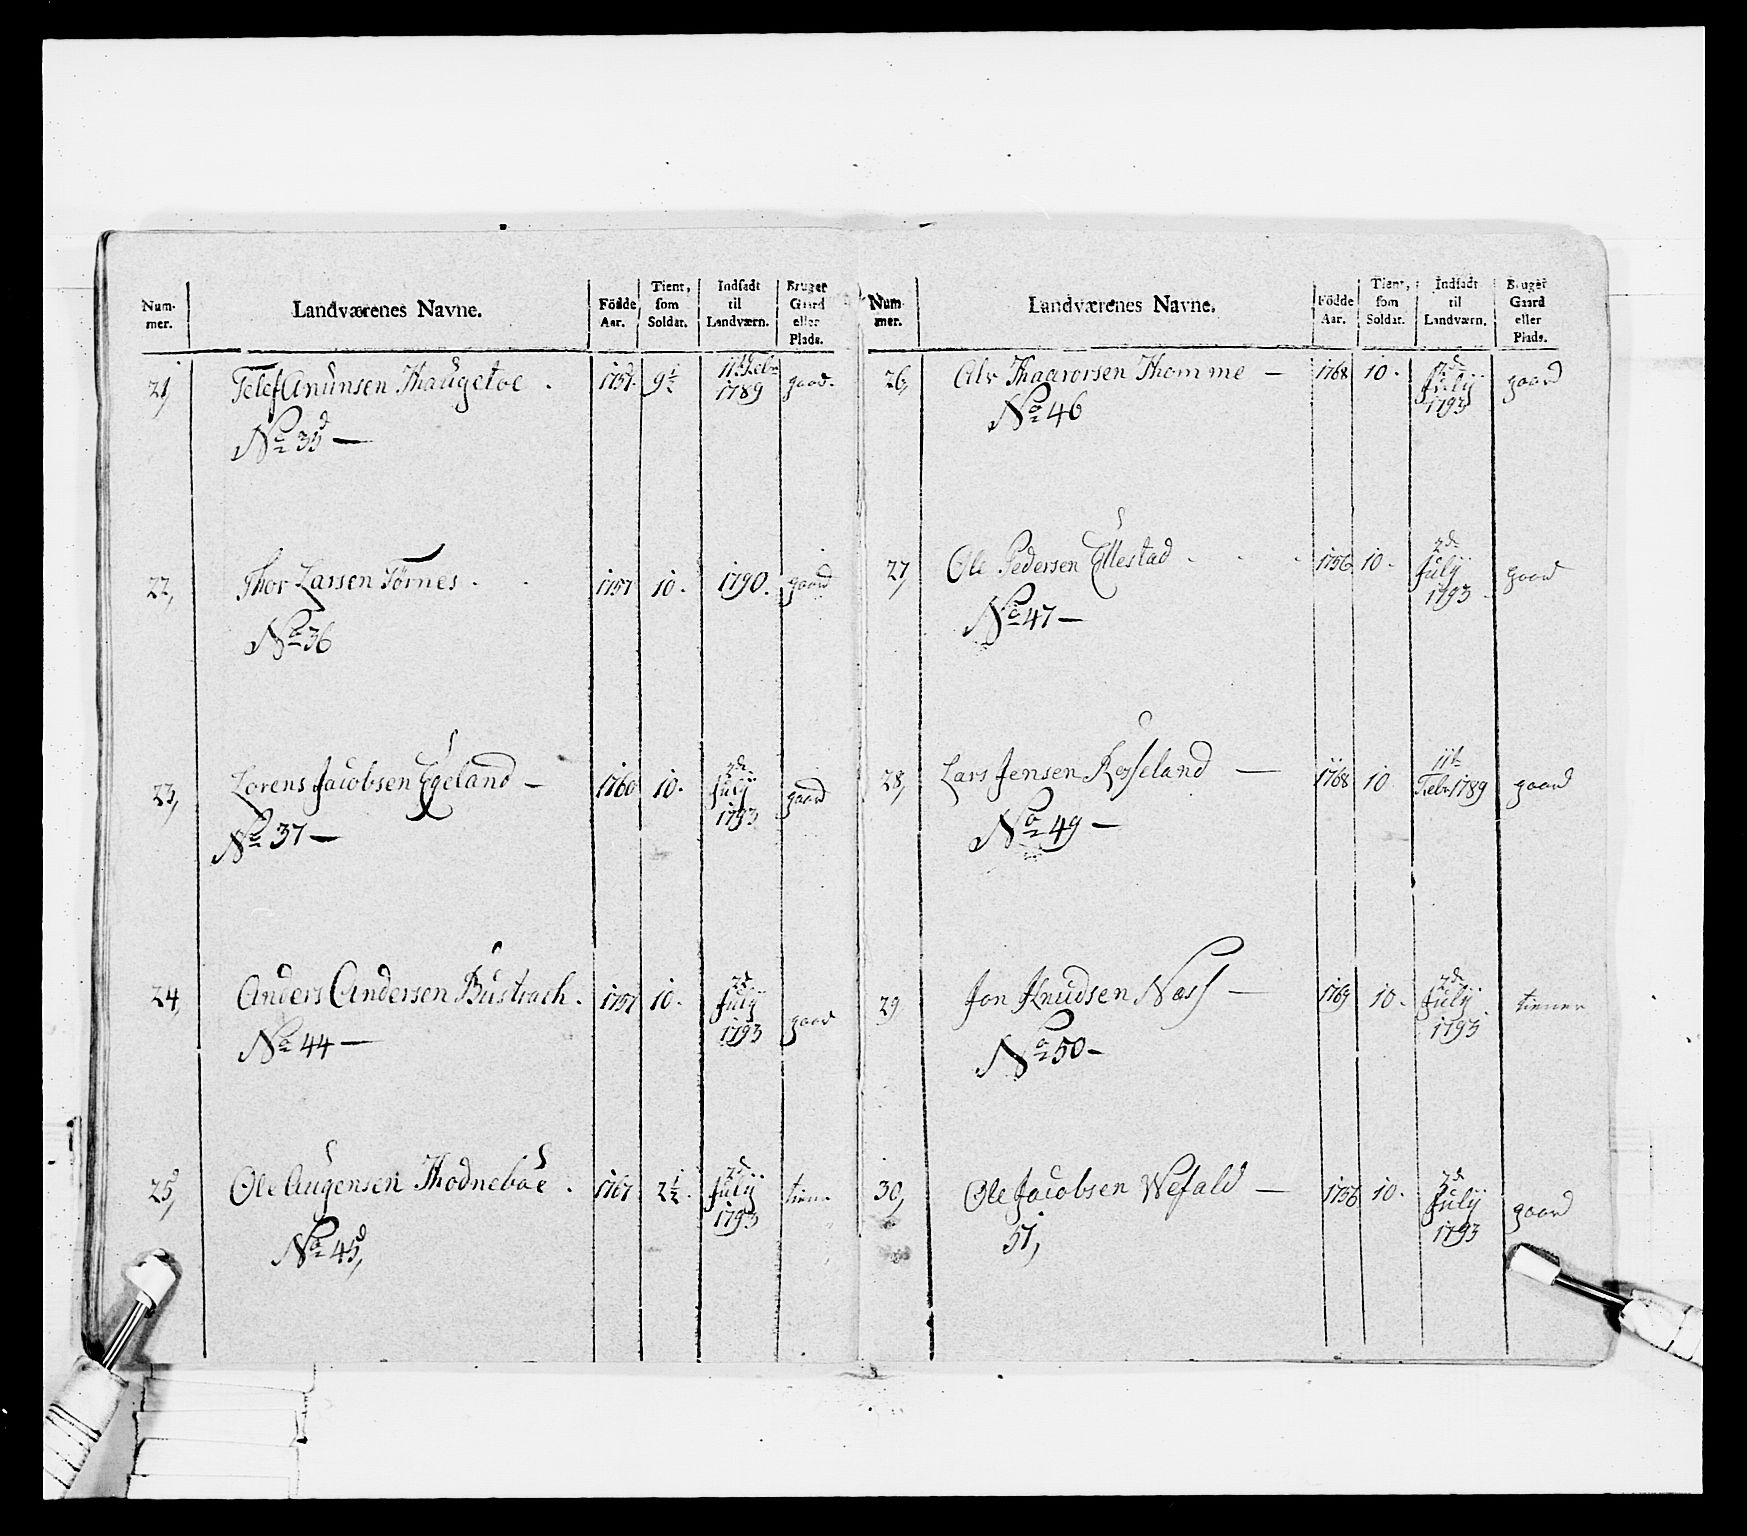 Num-mer. Landværenes Navne. Födde Aar. Tient, som Soldat. Indsadt til Landværn. Bruger Gaard eller Plads.
21, Telef Anunsen Thaugetoe . 1757. 9½ 11te Febr 1789 gaard.
No 35 —
22, Thor Larsen Törnes . . 1757 10. 1790. gaard
No 36
23, Lorens Jacobsen Egeland — 1760 10. 2de July 1793 gaard
No 37 —
24, Anders Andersen Bustrach. 1757 10. 2de July 1793 gaard
No 44 —
25, Ole Augensen Thodneboe . 1767 2½. 2de July 1793 tien.
No 45,
Num-mer. Landværenes Navne. Födde Aar. Tient, som Soldat. Indsadt til Landværn. Bruger Gaard eller Plads.
26, Alv Thaarorsen Thomme — 1768 10. 2de July 1793 gaard
No 46
27, Ole Pedersen Ellestad . . . 1756 10. 2de July 1793. gaard
No 47 —
28, Lars Jensen Rosseland — 1768 10 11te Febr 1789 gaard
No 49 —
29 Jon Knudsen Næss — 1769 10. 2de July 1793 tiener
No 50 —
30, Ole Jacobsen Wefald — 1756 10. 2de July 1793 gaard
51,